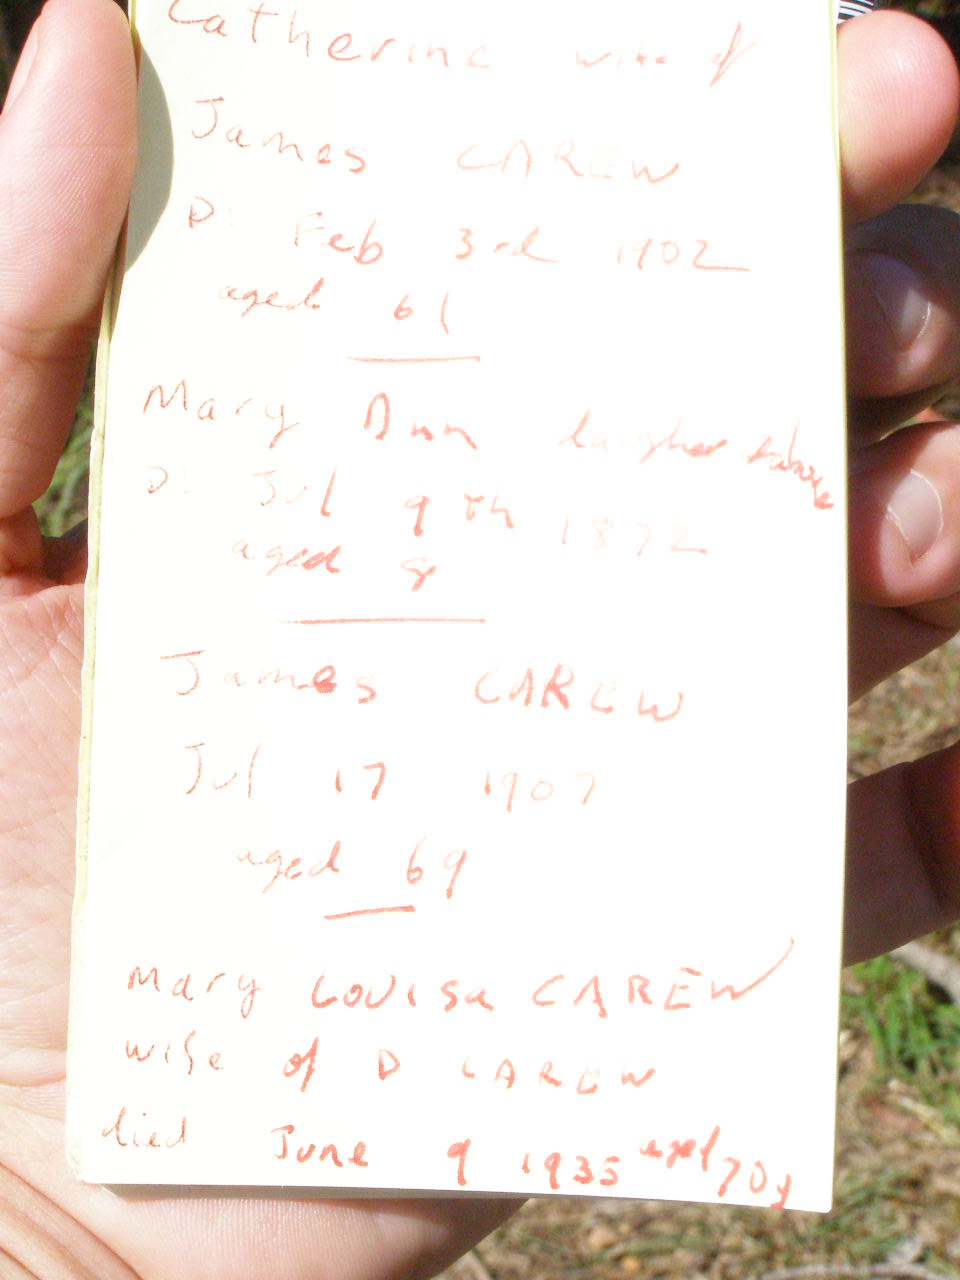 Catherine wife of
James CAREW
D: Feb 3rd 1902
aged 61
Mary Ann daugher above
D: Jul 9th 1872
aged 8
James CAREW
Jul 17 1907
aged 69
Mary Louisa CAREW
wife of D CAREW
died June 9 1935 aged 70y